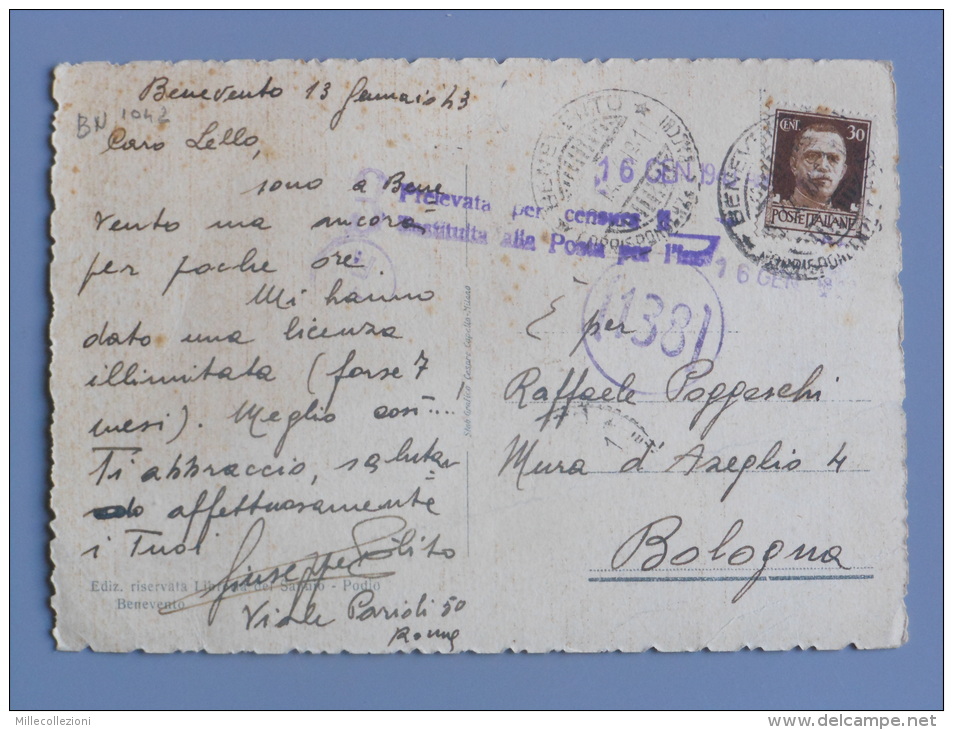 Benevento 13 Gennaio 43
BN 1042
Caro Lello,
sono a Bene
vento ma ancora
per poche ore.
Mi hanno
dato una licenza
illimitata (forse 7
mesi). Meglio così....!
Ti abbraccio, salutan
do affettuosamente
i Tuoi
Giuseppe
Viale Parioli 50
Roma
Ediz. riservata Libreria del Sannio - Podio
Benevento
BENEVENTO
16 GEN 194
Prelevata per censura il
Restituita alla Posta per l'in
16 GEN
138
CENT. 30
POSTE ITALIANE
BENEVENTO
E per
Raffaele Poggeschi
Mura d'Azeglio 4
Bologna
Millecollezioni
delcampe.net